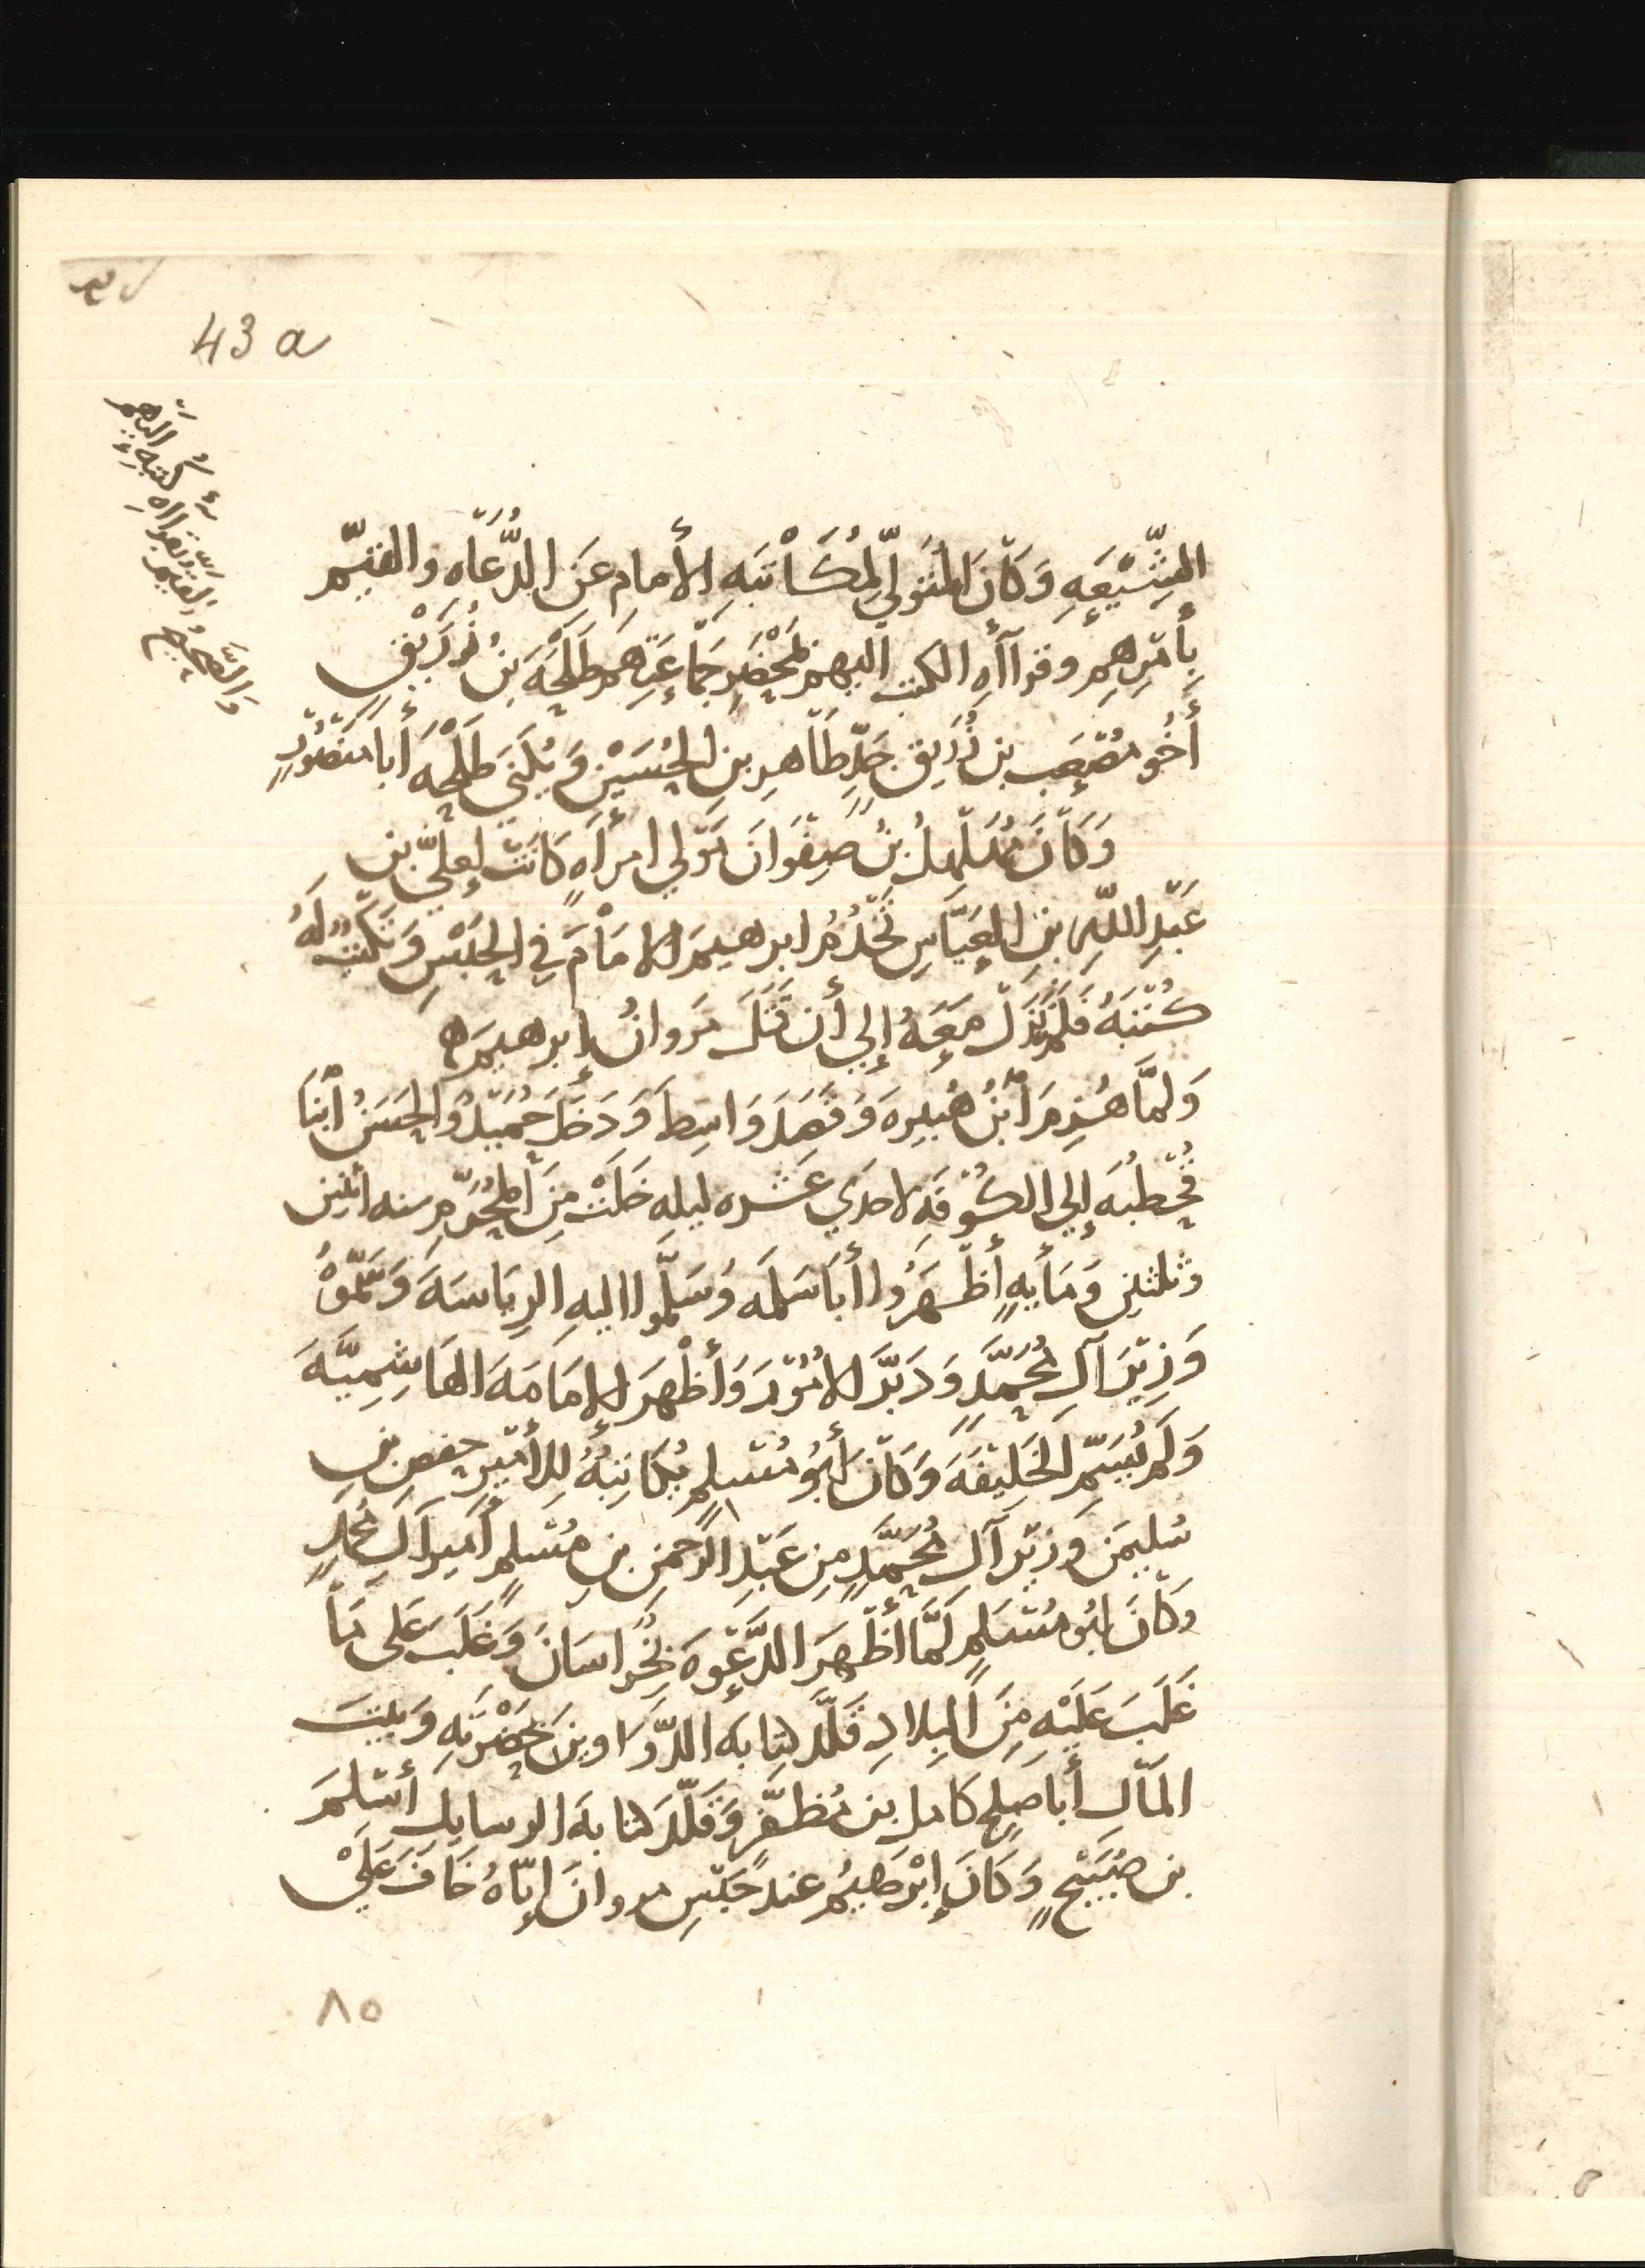 43 a
والصحيح القيم بقرااه كتبه اليهم
الشِّيْعَهِ وَكَانَ المُتَولِّيَ لِمُكَاْتَبَهِ الأمامِ عَنِ الدُّعَاهِ والقيّم
بِأَمْرِهِم وقرآأهِ الكتب اليهم بمَحْضَرِ جَمَاعَتِهم طَلْحَه بن زُرَيْقٍ
أَخُو مُصْعَب بن زُرَيق جَدِّ طَاهِرِ بنِ الحُسَيْنِ وَ يُكْنَي طَلْحَهُ أَبا مَنْصُوْرٍ
وَكَانَ مُهَلْهِلُ بنُ صَفْوَانَ مَوْلي امرَأهٍ كَانَتْ لِعَلِيّ بن
عَبْدِ اللهِ بنِ العَبَّاسِ يَخْدُمُ ابرهيمَ الامَاْمَ في الحَبْسِ وَ يَكْتُبُ لَهُ
كُتُبَهُ فَلَم يَزَل مَعَهُ إلي أن قَتَلَ مَروانُ إبرهيمَ ه
وَلمَّا هُزِمَ ابْنُ هُبَيره وَ قَصَدَ وَاسِط وَ دَخَلَ حُمَيْدٌ وَالحَسَنُ ابْنَا
قُحْطبَه إلي الكُوْفَهِ لاحدي عَشره ليلهِ خلَتْ مِنَ المُحَرّم سنه اثنين
وثلثين وَ مَأيهٍ أَظْهَرُوا أَبَا سَلَمَه وَ سَلَّموا اليهِ الرِيَاسَهَ وَ سَمَّوْهُ
وَزِيْرَ آلِ مُحَمَّدٍ وَ دَبَّرَ الامُوْرَ وَأَظْهَرَ الإمَامَهَ الهَاشِميَّهَ
وَ لَم يُسَمِّ الخَلِيْفَهَ وَ كَانَ أبُو مُسْلِم يُكَاتِبُهُ لِلأَمْيرِ حفصِ بنِ
سُليمَن وَزِيْر آل مُحَمَّدٍ مِن عَبْدِ الرَحمن بنِ مُسْلم أمير آلِ مُحَمدٍ
وكَانَ ابُو مُسْلم لمَّا أَظْهَرَ الدَّعْوهَ بخُراسَانَ وَ غَلَبَ عَلى مَا
غَلَبَ عَلَيْهِ مِنَ البِلادِ قَلَّدَ كِتَابَه الدَّوَاوينَ بِحَضْرَتِهِ وَ بيتَ
المَالِ أَبا صَلحٍ كامل بن مُظَفَّرٍ وَ قَلَّدَ كتابهَ الرسايلِ أَسْلَمَ
بن صُبَيْحٍ وَ كَانَ إبْرَهيمُ عند حَبْسِ مروانَ إيّاهُ خَافَ عَلَيْ
٨٥